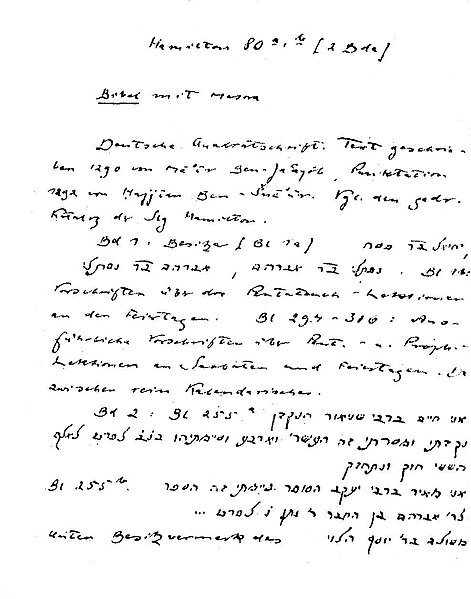 Hamilton 80 a, b [2 Bde]
Bibel mit Masora
Deutsche Quadratschrift. Text geschrie-
ben 1290 von Mē'īr Ben-Ja'aqōb, Punktation
1292 von Hajjim Ben - Šnē'ūr. Vgl. den gedr.
Katalog der Slg Hamilton.
Bd 1. Besitzer [Bl 1a] יחיאל בר פסח,
נפתלי בר אברהם, אברהם בר נפתלי. Bl 1b:
Vorschriften über die Pentateuch-Lektionen
an den Feiertagen. Bl 29.4 - 316: Aus-
führliche Vorschriften über Pent.- u. Proph.-
Lektionen an Sabbaten und Feiertagen. Da
zwischen rein Kalendarisches.
Bd 2: Bl 255 a אני חיים ברבי שניאור הנקדן
נקדתי ומסרתי זה העשרי וארבע וסיימתיהו בנ״ב לפרט לאלף
הששי חזק ונתחזק
Bl 255 b. אני מאיר ברבי יעקב הסופר סיימתי זה הספר
לר׳ אברהם בן החבר ר׳ נתן נ׳ לפרט ...
Besitzvermerk des משולם בר יוסף הלוי